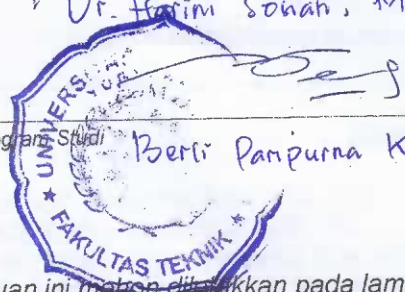 Dr. Harini Sonah, M
gram Studi
Berli Paripurna K
UNIVERS
★ FAKULTAS TEKNIK ★
uan ini mohon diletakkan pada lam